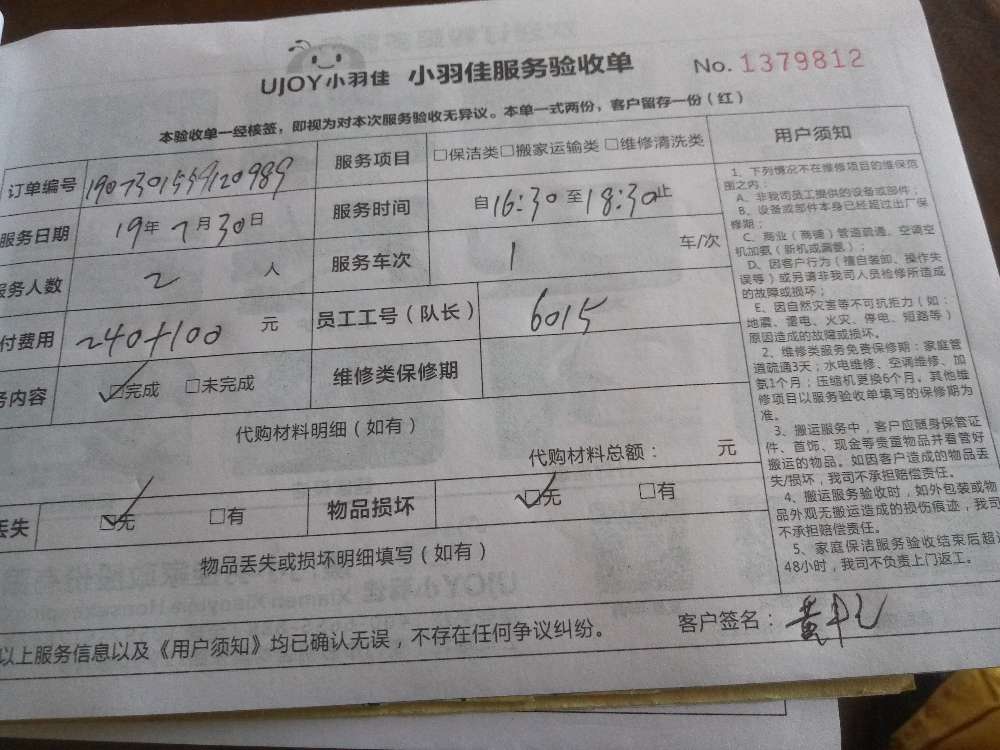 UJOY小羽佳 小羽佳服务验收单 No. 1379812
本验收单一经核签，即视为对本次服务验收无异议。本单一式两份，客户留存一份（红）
订单编号 1907301559120989 服务项目 □保洁类□搬家运输类 □维修清洗类
服务日期 19年7月30日 服务时间 自16:30至18:30止
服务人数 2 人 服务车次 1 车/次
付费用 240+100 元 员工工号（队长） 6015
务内容 ☑完成 □未完成 维修类保修期
代购材料明细（如有）
代购材料总额： 元
丢失 ☑无 □有 物品损坏 ☑无 □有
物品丢失或损坏明细填写（如有）
以上服务信息以及《用户须知》均已确认无误，不存在任何争议纠纷。 客户签名：
用户须知
1、下列情况不在维修项目的维保范
围之内：
A、非我司员工提供的设备或部件；
B、设备或部件本身已经超过出厂保
修期；
C、商业（商铺）管道疏通、空调空
机加氨（新机或漏氨）；
D、因客户行为（擅自装卸、操作失
误等）或另请非我司人员检修所造成
的故障或损坏；
E、因自然灾害等不可抗拒力（如：
地震、雷电、火灾、停电、短路等）
原因造成的故障或损坏。
2、维修类服务免费保修期：家庭管
道疏通3天；水电维修、空调维修、加
氨1个月；压缩机更换6个月。其他维
修项目以服务验收单填写的保修期为
准。
3、搬运服务中，客户应随身保管证
件、首饰、现金等贵重物品并看管好
搬运的物品。如因客户造成的物品丢
失/损坏，我司不承担赔偿责任。
4、搬运服务验收时，如外包装或物
品外观无搬运造成的损伤痕迹，我司
不承担赔偿责任。
5、家庭保洁服务验收结束后超过
48小时，我司不负责上门返工。